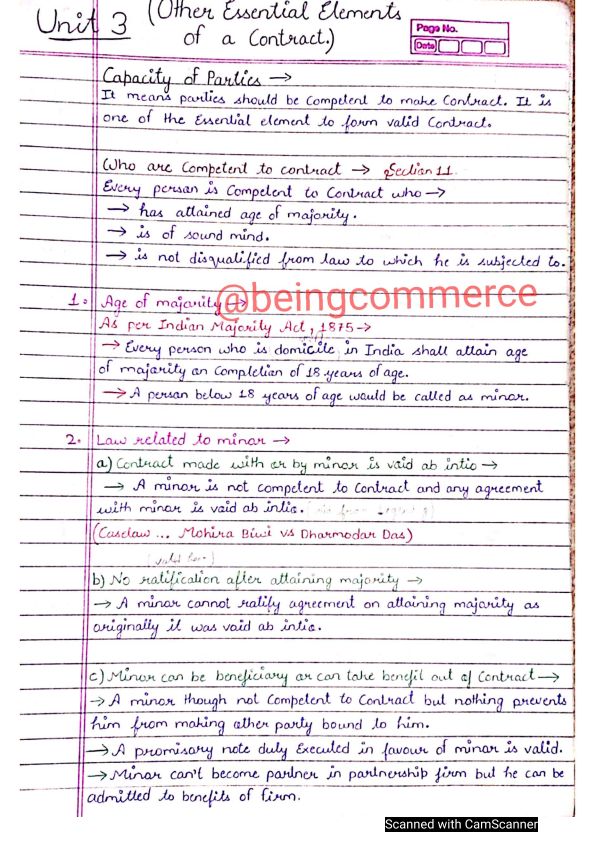 Unit 3 (Other Essential Elements
of a Contract.)
Page No.
Date
Capacity of Parties →
It means parties should be competent to make Contract. It is
one of the Essential element to form valid Contract.
Who are Competent to contract → Section 11
Every person is Competent to Contract who →
→ has attained age of majority.
→ is of sound mind.
→ is not disqualified from law to which he is subjected to.
@beingcommerce
1. Age of majority →
As per Indian Majority Act, 1875 →
→ Every person who is domicile in India shall attain age
of majority on Completion of 18 years of age.
→ A person below 18 years of age would be called as minor.
2. Law related to minor →
a) Contract made with or by minor is void ab intio →
→ A minor is not competent to Contract and any agreement
with minor is void ab intio.
(Caselaw ... Mohira Biwi vs Dharmodar Das)
b) No ratification after attaining majority →
→ A minor cannot ratify agreement on attaining majority as
originally it was void ab intio.
c) Minor can be beneficiary or can take benefit out of Contract →
→ A minor though not Competent to Contract but nothing prevents
him from making other party bound to him.
→ A promisary note duly Executed in favour of minor is valid.
→ Minor can't become partner in partnership firm but he can be
admitted to benefits of firm.
Scanned with CamScanner